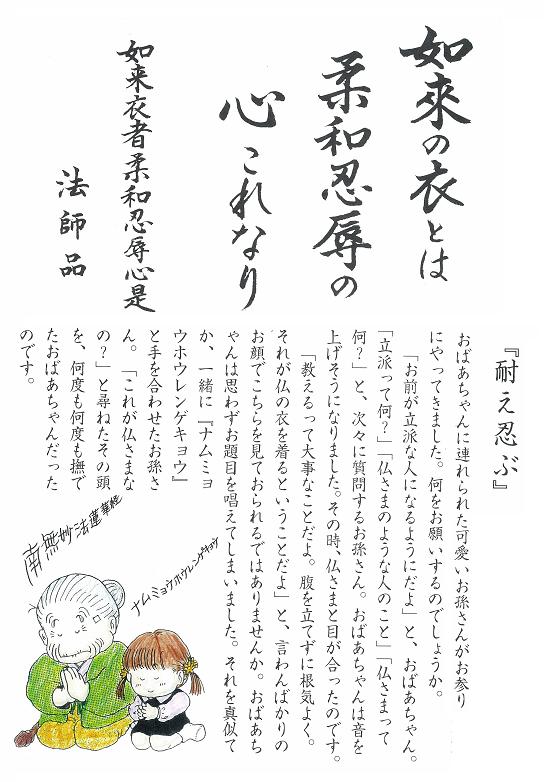 如來の衣とは
柔和忍辱の
心これなり
如来衣者柔和忍辱心是
法師品
『耐え忍ぶ』
おばあちゃんに連れられた可愛いお孫さんがお参り
にやってきました。何をお願いするのでしょうか。
「お前が立派な人になるようにだよ」と、おばあちゃん。
「立派って何?」「仏さまのような人のこと」「仏さまって
何?」と、次々に質問するお孫さん。おばあちゃんは音を
上げそうになりました。その時、仏さまと目が合ったのです。
「教えるって大事なことだよ。腹を立てずに根気よく。
それが仏の衣を着るということだよ」と、言わんばかりの
お顔でこちらを見ておられるではありませんか。おばあち
ゃんは思わずお題目を唱えてしまいました。それを真似て
か、一緒に『ナムミョ
ウホウレンゲキョウ』
と手を合わせたお孫さ
ん。「これが仏さまな
の?」と尋ねたその頭
を、何度も何度も撫で
たおばあちゃんだった
のです。
南無妙法蓮華経
ナムミョウホウレンゲキョウ